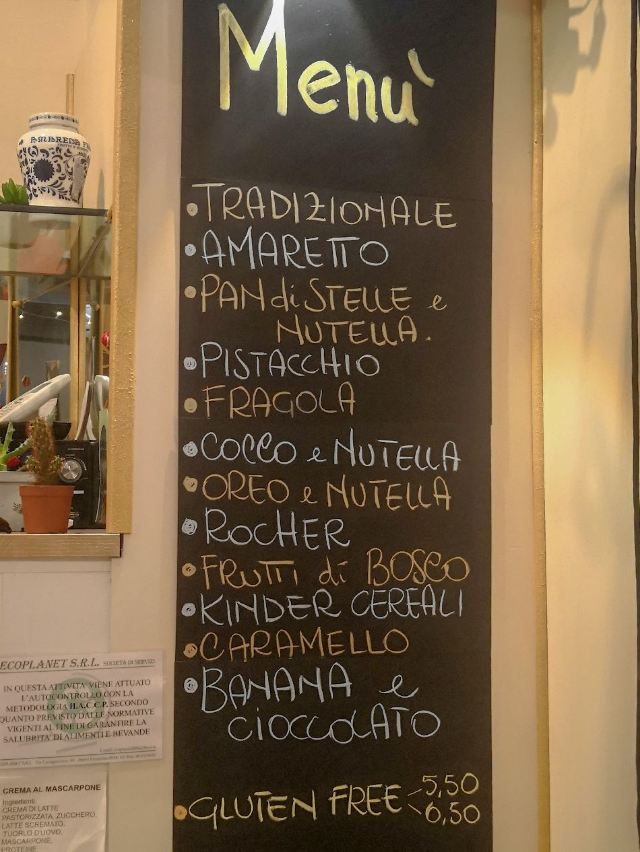 Menù
• TRADIZIONALE
• AMARETTO
• PAN di STELLE e
NUTELLA.
• PISTACCHIO
• FRAGOLA
• COCCO e NUTELLA
• OREO e NUTELLA
• ROCHER
• FRUTTI di BOSCO
• KINDER CEREALI
• CARAMELLO
• BANANA e
CIOCCOLATO
• GLUTEN FREE 5,50
6,50
AMARENA
ECOPLANET S.R.L. SOCIETÀ DI SERVIZI
IN QUESTA ATTIVITA' VIENE ATTUATO
L'AUTOCONTROLLO CON LA
METODOLOGIA H.A.C.C.P. SECONDO
QUANTO PREVISTO DALLE NORMATIVE
VIGENTI AL FINE DI GARANTIRE LA
SALUBRITA' DI ALIMENTI E BEVANDE
CREMA AL MASCARPONE
Ingredienti:
CREMA DI LATTE
PASTORIZZATA, ZUCCHERO,
LATTE SCREMATO,
TUORLO D'UOVO,
MASCARPONE,
PROTEINE